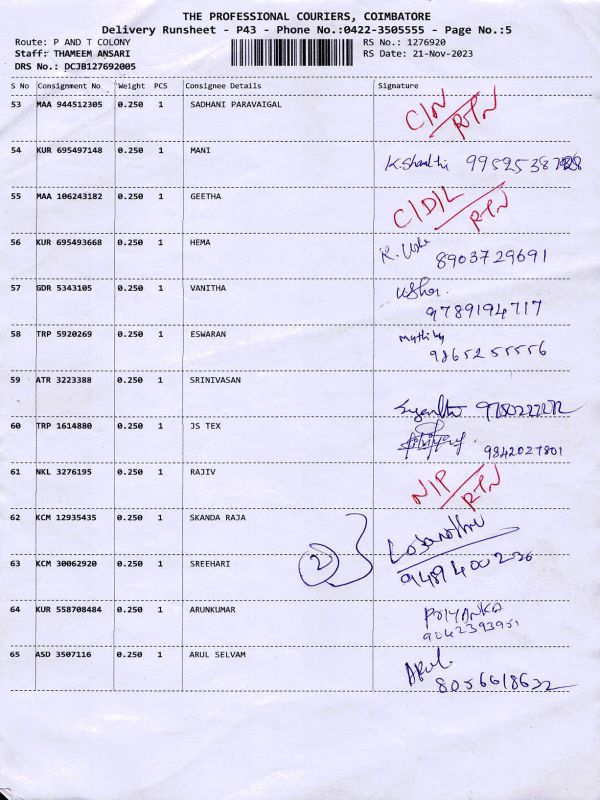 THE PROFESSIONAL COURIERS, COIMBATORE
Delivery Runsheet - P43 - Phone No.:0422-3505555 - Page No.:5
Route: P AND T COLONY RS No.: 1276920
Staff: THAMEEM ANSARI RS Date: 21-Nov-2023
DRS No.: DCJB127692005
S No Consignment No Weight PCS Consignee Details Signature
53 MAA 944512305 0.250 1 SADHANI PARAVAIGAL C/N RTN
54 KUR 695497148 0.250 1 MANI
55 MAA 106243182 0.250 1 GEETHA C/D/L RTN
56 KUR 695493668 0.250 1 HEMA K. Usha 8903729691
57 GDR 5343105 0.250 1 VANITHA usha.
9789194717
58 TRP 5920269 0.250 1 ESWARAN
9865255556
59 ATR 3223388 0.250 1 SRINIVASAN
60 TRP 1614880 0.250 1 JS TEX 9842027801
61 NKL 3276195 0.250 1 RAJIV N/P RTN
62 KCM 12935435 0.250 1 SKANDA RAJA
2
63 KCM 30062920 0.250 1 SREEHARI
64 KUR 558708484 0.250 1 ARUNKUMAR PRIYANKA
65 ASD 3507116 0.250 1 ARUL SELVAM Arul.
8056618632